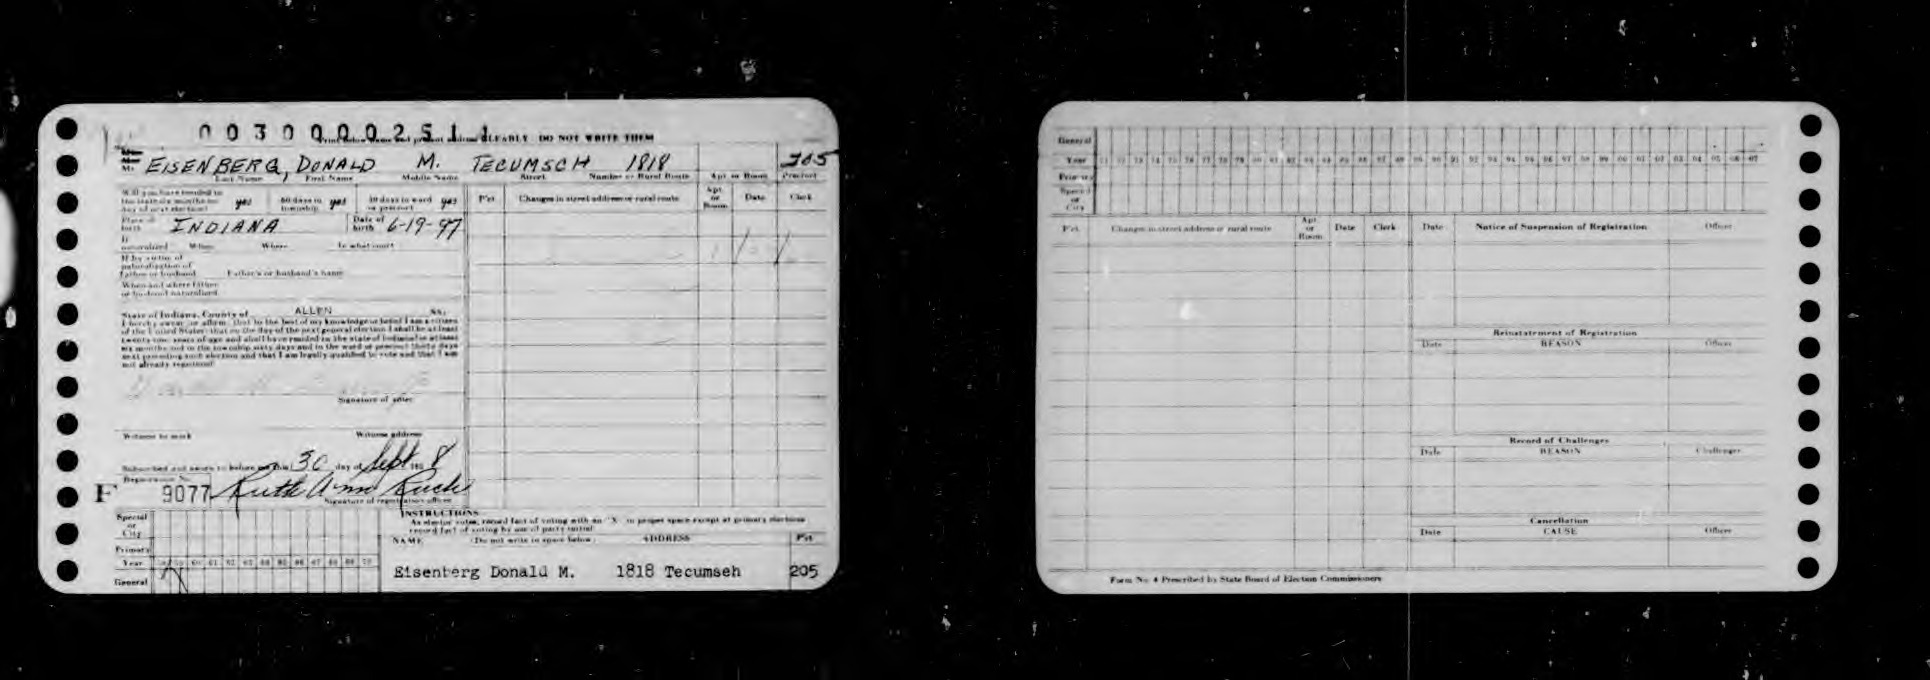 0 0 3 0 0 0 0 2 5 1 1
Print below name and present address CLEARLY DO NOT WRITE THEM
Mr. EISENBERG, DONALD M. TECUMSCH 1818 205
Last Name First Name Middle Name Street Number or Rural Route Apt or Room Precinct
Will you have resided in the state six months on day of next election? yes 60 days in township yes 30 days in ward or precinct yes
Place of birth INDIANA Date of birth 6-19-
If naturalized When Where In what court
If by virtue of naturalization of father or husband Father's or husband's name
When and where father or husband naturalized
State of Indiana, County of ALLEN SS:
I hereby swear or affirm that to the best of my knowledge or belief I am a citizen
of the United States that on the day of the next general election I shall be at least
twenty-one years of age and shall have resided in the state of Indiana at least
six months and in the township sixty days and in the ward or precinct thirty days
next preceding such election and that I am legally qualified to vote and that I am
not already registered
Signature of voter
Witness to mark Witness address
Subscribed and sworn to before me this 30 day of Sept 195 8
Registration No.
F 9077 Ruth Ann
Signature of registration officer
P'ct Changes in street address or rural route Apt or Room Date Clerk
Special or City
Primary
Year 58 59 60 61 62 63 64 65 66 67 68 69 70
General
INSTRUCTIONS
As elector votes, record fact of voting with an "X" in proper space except at primary elections
record fact of voting by use of party initial
NAME (Do not write in space below) ADDRESS Pct
Eisenberg Donald M. 1818 Tecumseh 205
General
Year 71 72 73 74 75 76 77 78 79 80 81 82 83 84 85 86 87 88 89 90 91 92 93 94 95 96 97 98 99 00 01 02 03 04 05 06 07
Primary
Special or City
P'ct Changes in street address or rural route Apt or Room Date Clerk
Date Notice of Suspension of Registration Officer
Reinstatement of Registration
Date REASON Officer
Record of Challenges
Date REASON Challenger
Cancellation
Date CAUSE Officer
Form No. 4 Prescribed by State Board of Election Commissioners